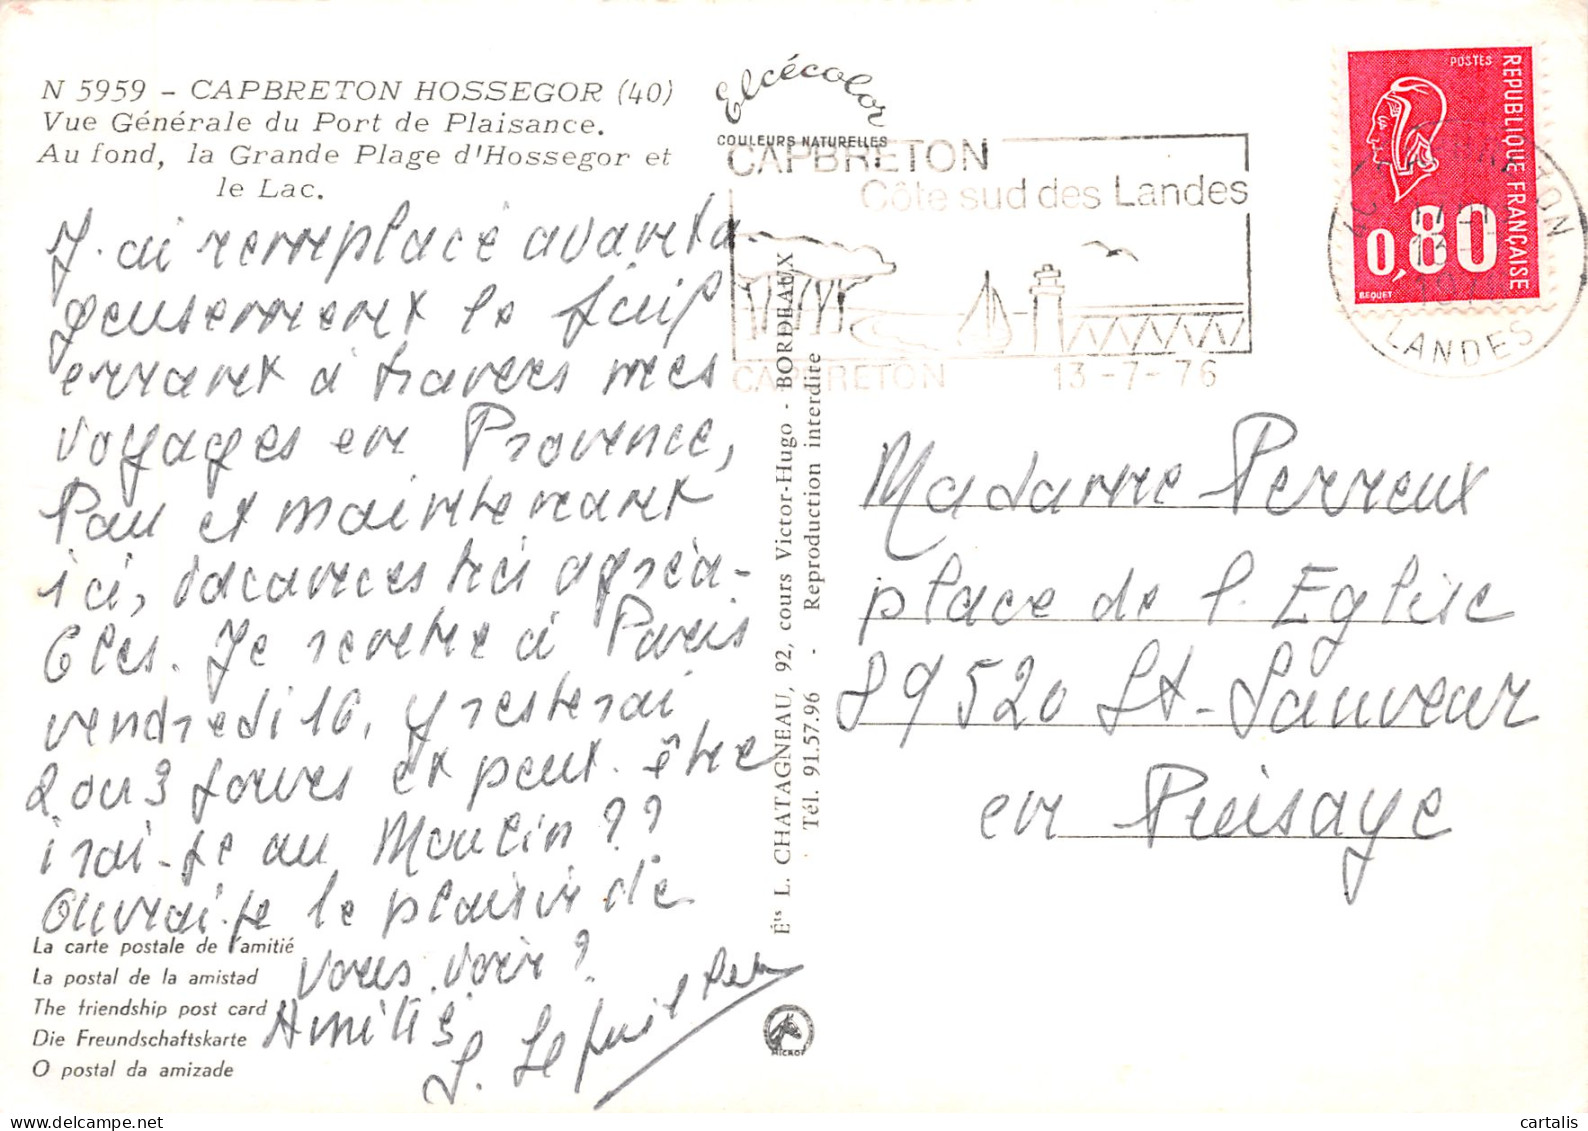 N 5959 - CAPBRETON HOSSEGOR (40)
Vue Générale du Port de Plaisance.
Au fond, la Grande Plage d'Hossegor et
le Lac.
J'ai remplacé avanta-
geusement le Juif
errant à travers mes
voyages en Provence,
Pau et maintenant
ici, vacances très agréa-
bles. Je rentre à Paris
vendredi 16, y resterai
2 ou 3 jours et peut-être
irai-je au Moulin ??
Aurai-je le plaisir de
vous voir ?
Amitiés
La carte postale de l'amitié
La postal de la amistad
The friendship post card
Die Freundschaftskarte
O postal da amizade
Elcécolor
COULEURS NATURELLES
CAPBRETON
Côte sud des Landes
CAPBRETON 13-7-76
Éts L. CHATAGNEAU, 92, cours Victor-Hugo - BORDEAUX
Tél. 91.57.96 - Reproduction interdite
MICRO
POSTES
REPUBLIQUE FRANÇAISE
0,80
BEQUET
LANDES
Madame Perreux
place de l'Eglise
89520 St-Sauveur
en Puisaye
cartalis
www.delcampe.net